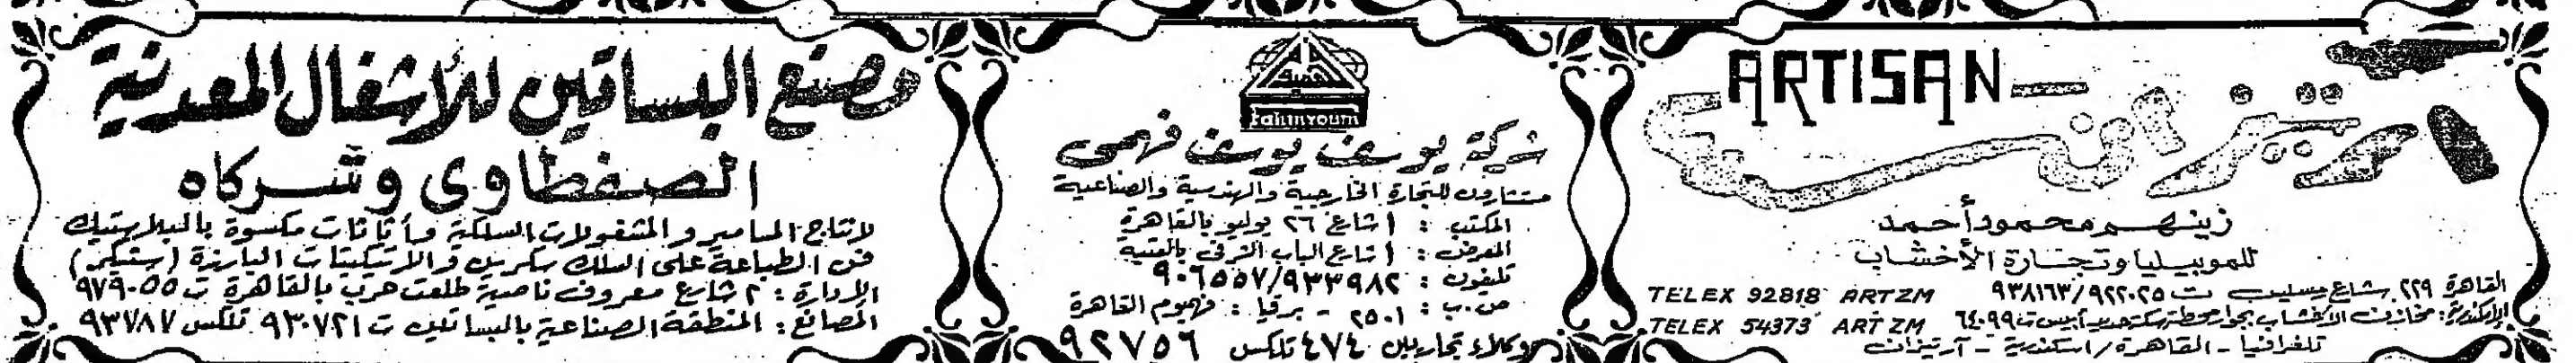 ARTISAN
آرتيزان
زينهم محمود أحمد
للموبيليا وتجارة الأخشاب
القاهرة ٢٢٩ شارع ت ٩٢٢٠٢٥/٩٣٨١٦٣ TELEX 92818 ARTZM
الإسكندرية: مخازن الأخشاب بجوار محطة سكة حديد ت ٦٤٠٩٩ TELEX 54373 ARTZM
تلغرافيا - القاهرة / اسكندرية - آرتيزان
فهيوم
Fahmyoum
شركة يوسف يوسف فهمى
مستشارون للتجارة الخارجية والهندسية والصناعية
المكتب : ١ شارع ٢٦ يوليو بالقاهرة
المعرض : ١ شارع الباب الشرقى بالعتبة
تليفون : ٩٠٦٥٥٧/٩٣٣٩٨٢
ص.ب : ٢٥٠١ - برقيا : فهيوم القاهرة
وكلاء تجاريين ٤٧٤ تلكس ٩٢٧٥٦
مصنع البساتين للأشغال المعدنية
الصفطاوى وشركاه
لانتاج المسامير والمشغولات السلكية وأثاثات مكسوة بالبلاستيك
فن الطباعة على السلك سكرين والاتيكيتات البارزة (ستيكر)
الإدارة : ٢ شارع معروف ناصية طلعت حرب بالقاهرة ت ٩٧٩٠٥٥
المصانع : المنطقة الصناعية بالبساتين ت ٩٣٠٧٢١ تلكس ٩٣٧٨٧